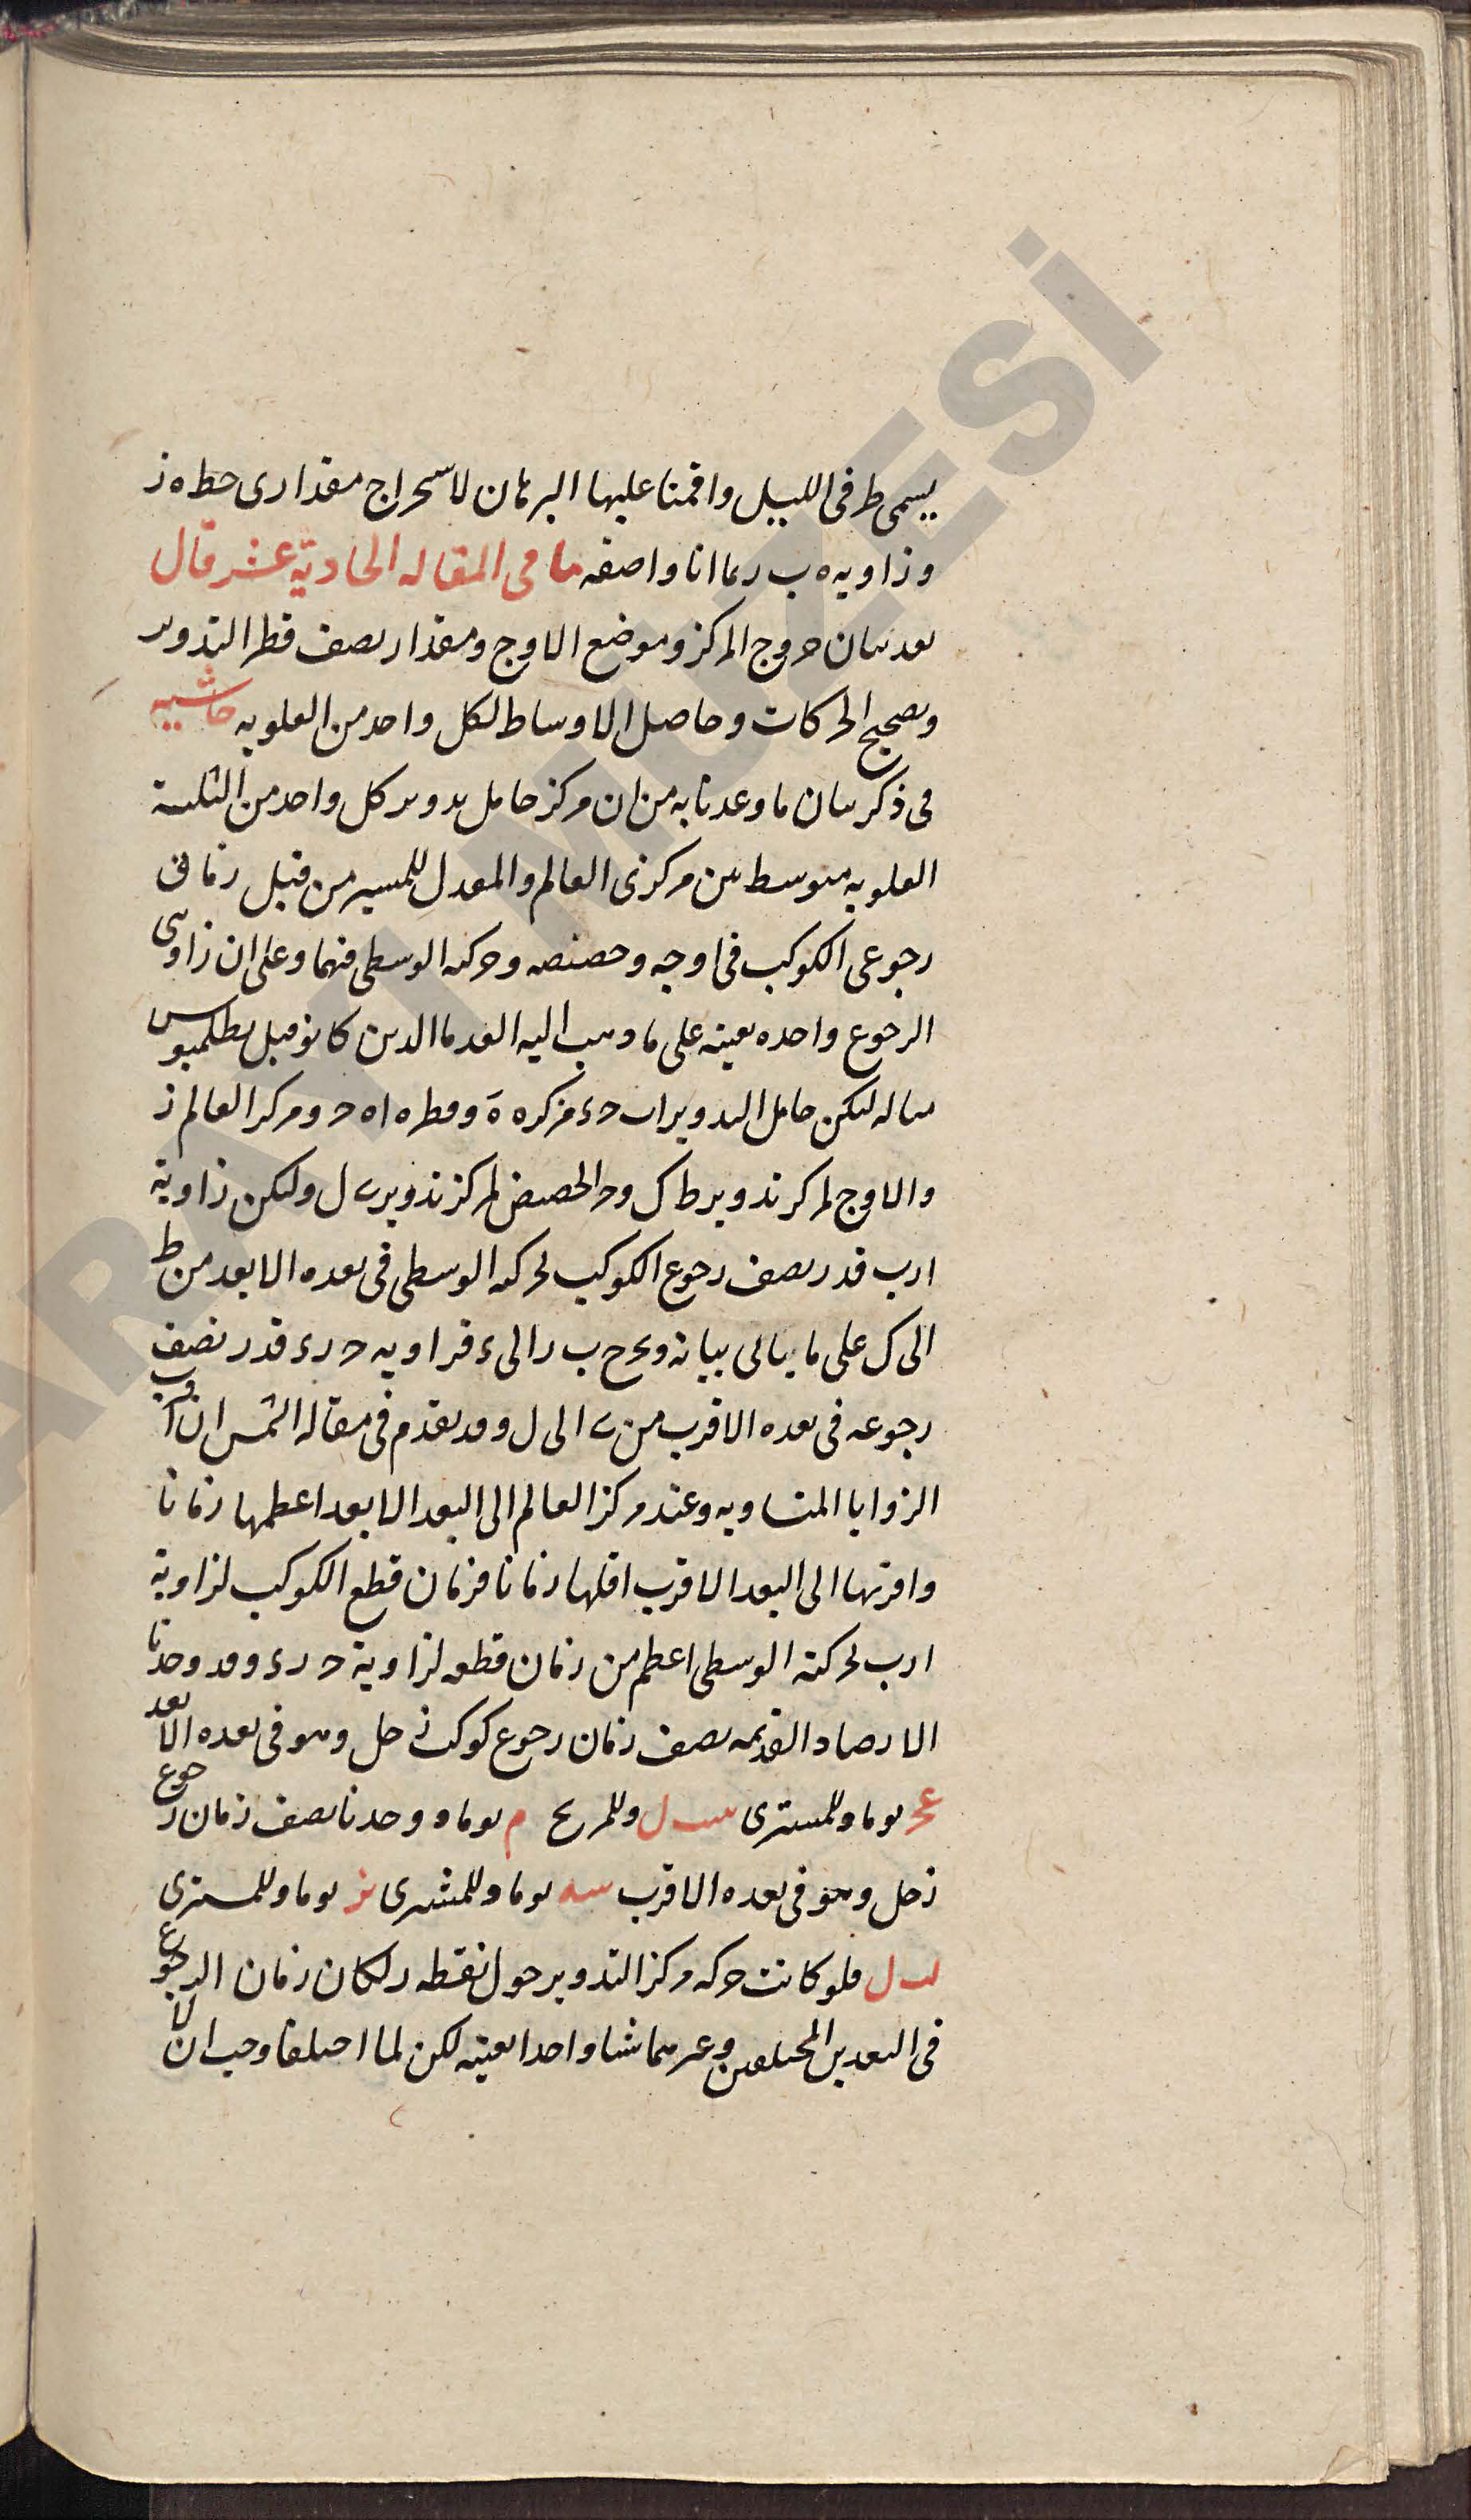 يسمى ط فى الليل واقمنا عليها البرهان لاستحراج مقدارى حط ه ز
وزاويه ه ب ر ما انا واصفه ما فى المقاله الحادية عشر قال
بعد بيان خروج المركز وموضع الاوج ومقدار نصف قطر التدوير
وتصحيح الحركات وحاصل الاوساط لكل واحد من العلويه حاشيه
فى ذكر بيان ما وعدنا به من ان مركز حامل تدوير كل واحد من الثلثة
العلويه متوسط بين مركزى العالم والمعدل للمسير من قبل زمانى
رجوعى الكوكب فى اوجه وحضيضه وحركته الوسطى فيهما وعلى ان زاويتى
الرجوع واحده بعينه على ما ذهب اليه القدما الذين كانو قبل بطلميوس
مثاله ليكن حامل التدوير اب حء مركزه ه وقطره ا ه ح ومركز العالم ز
والاوج لمركز تدوير ط ك وح الحضيض لمركز تدوير ى ل وليكن زاوية
ا ر ب قدر نصف رجوع الكوكب لحركته الوسطى فى بعده الابعد من ط
الى ك على ما يالى بيانه ونخرج ب ر الى ء فزاويه ح ر ء قدر نصف
رجوعه فى بعده الاقرب من ى الى ل وقد تقدم فى مقاله الشمس ان اقرب
الزوايا المتساويه وعند مركز العالم الى البعد الابعد اعظمها زمانا
واقربها الى البعد الاقرب اقلها زمانا فزمان قطع الكوكب لزاوية
ا ر ب لحركته الوسطى اعظم من زمان قطعه لزاوية ح ر ء وقد وجدنا
الارصاد القديمه نصف زمان رجوع كوكب زحل وهو فى بعده الابعد
عح يوما وللمشترى سب ل وللمريخ م يوما ووجدنا نصف زمان رجوع
زحل وهو فى بعده الاقرب سه يوما وللمشترى نز يوما وللمشترى
لب ل فلو كانت حركه مركز التدوير حول نقطه ر لكان زمان الرجوع
فى البعدين المختلفين وغيرهما شيا واحدا بعينه لكن لما اختلفا وجب ان لا